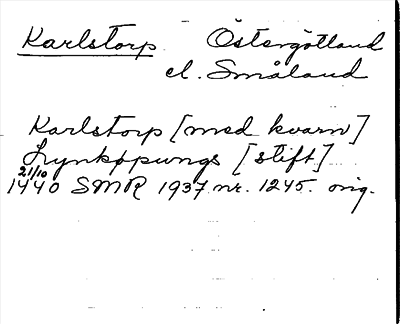 Karlstorp. Östergötland
el. Småland
Karlstorp [med kvarn]
Lynkøpungs [stift]
21/10
1440 SMR 1937 nr. 1245. orig.